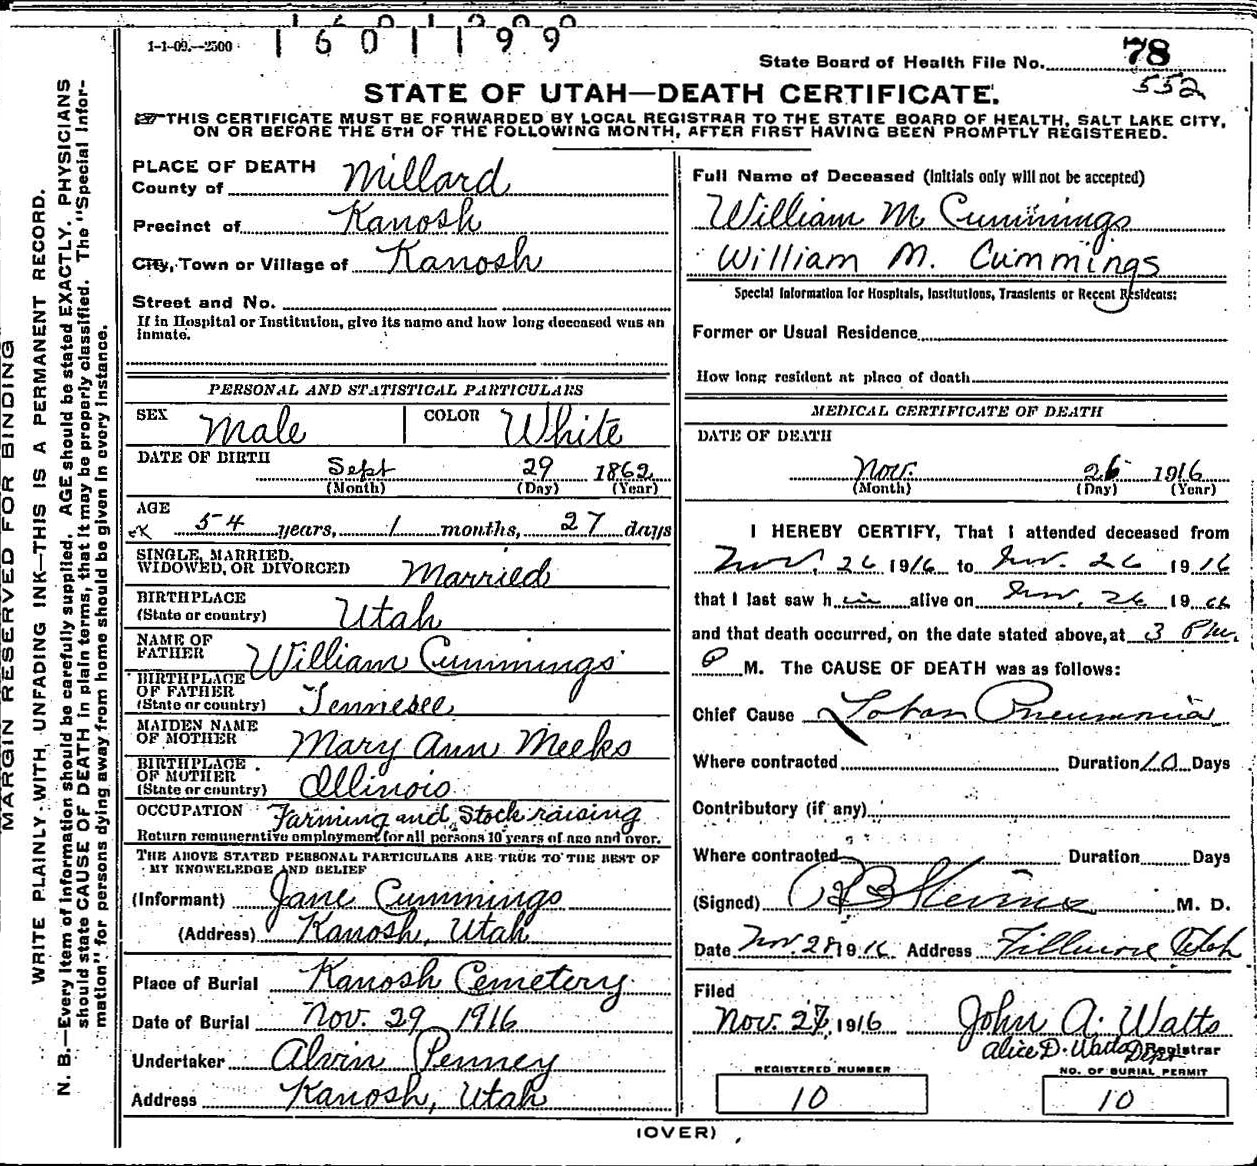 1-1-09.--2500
1601199
State Board of Health File No. 78
552
STATE OF UTAH—DEATH CERTIFICATE.
THIS CERTIFICATE MUST BE FORWARDED BY LOCAL REGISTRAR TO THE STATE BOARD OF HEALTH, SALT LAKE CITY,
ON OR BEFORE THE 5TH OF THE FOLLOWING MONTH, AFTER FIRST HAVING BEEN PROMPTLY REGISTERED.
MARGIN RESERVED FOR BINDING
WRITE PLAINLY WITH UNFADING INK—THIS IS A PERMANENT RECORD.
N. B.—Every item of information should be carefully supplied. AGE should be stated EXACTLY. PHYSICIANS
should state CAUSE OF DEATH in plain terms, that it may be properly classified. The "Special Infor-
mation" for persons dying away from home should be given in every instance.
PLACE OF DEATH
County of Millard
Precinct of Kanosh
City, Town or Village of Kanosh
Street and No.
If in Hospital or Institution, give its name and how long deceased was an
inmate.
PERSONAL AND STATISTICAL PARTICULARS
SEX Male COLOR White
DATE OF BIRTH
Sept 29 1862
(Month) (Day) (Year)
AGE
54 years, 1 months, 27 days
SINGLE, MARRIED,
WIDOWED, OR DIVORCED Married
BIRTHPLACE
(State or country) Utah
NAME OF
FATHER William Cummings
BIRTHPLACE
OF FATHER
(State or country) Tennesee
MAIDEN NAME
OF MOTHER Mary Ann Meeks
BIRTHPLACE
OF MOTHER
(State or country) Illinois
OCCUPATION Farming and Stock raising
Return remunerative employment for all persons 10 years of age and over.
THE ABOVE STATED PERSONAL PARTICULARS ARE TRUE TO THE BEST OF
MY KNOWELEDGE AND BELIEF
(Informant) Jane Cummings
(Address) Kanosh, Utah
Place of Burial Kanosh Cemetery
Date of Burial Nov. 29 1916
Undertaker Alvin Penney
Address Kanosh, Utah
Full Name of Deceased (Initials only will not be accepted)
William M Cummings
William M. Cummings
Special Information for Hospitals, Institutions, Transients or Recent Residents:
Former or Usual Residence
How long resident at place of death
MEDICAL CERTIFICATE OF DEATH
DATE OF DEATH
Nov. 26 1916
(Month) (Day) (Year)
I HEREBY CERTIFY, That I attended deceased from
Nov. 26 1916 to Nov. 26 1916
that I last saw him alive on Nov. 26 19
and that death occurred, on the date stated above, at 3 P.m.
P M. The CAUSE OF DEATH was as follows:
Chief Cause Lobar Pneumonia
Where contracted Duration 10 Days
Contributory (if any)
Where contracted Duration Days
(Signed) Stevens M. D.
Date Nov. 28 1916 Address Fillmore Utah
Filed
Nov. 27, 1916 John A. Watts
Alice D. Watts Dept Registrar
REGISTERED NUMBER
10
NO. OF BURIAL PERMIT
10
(OVER)